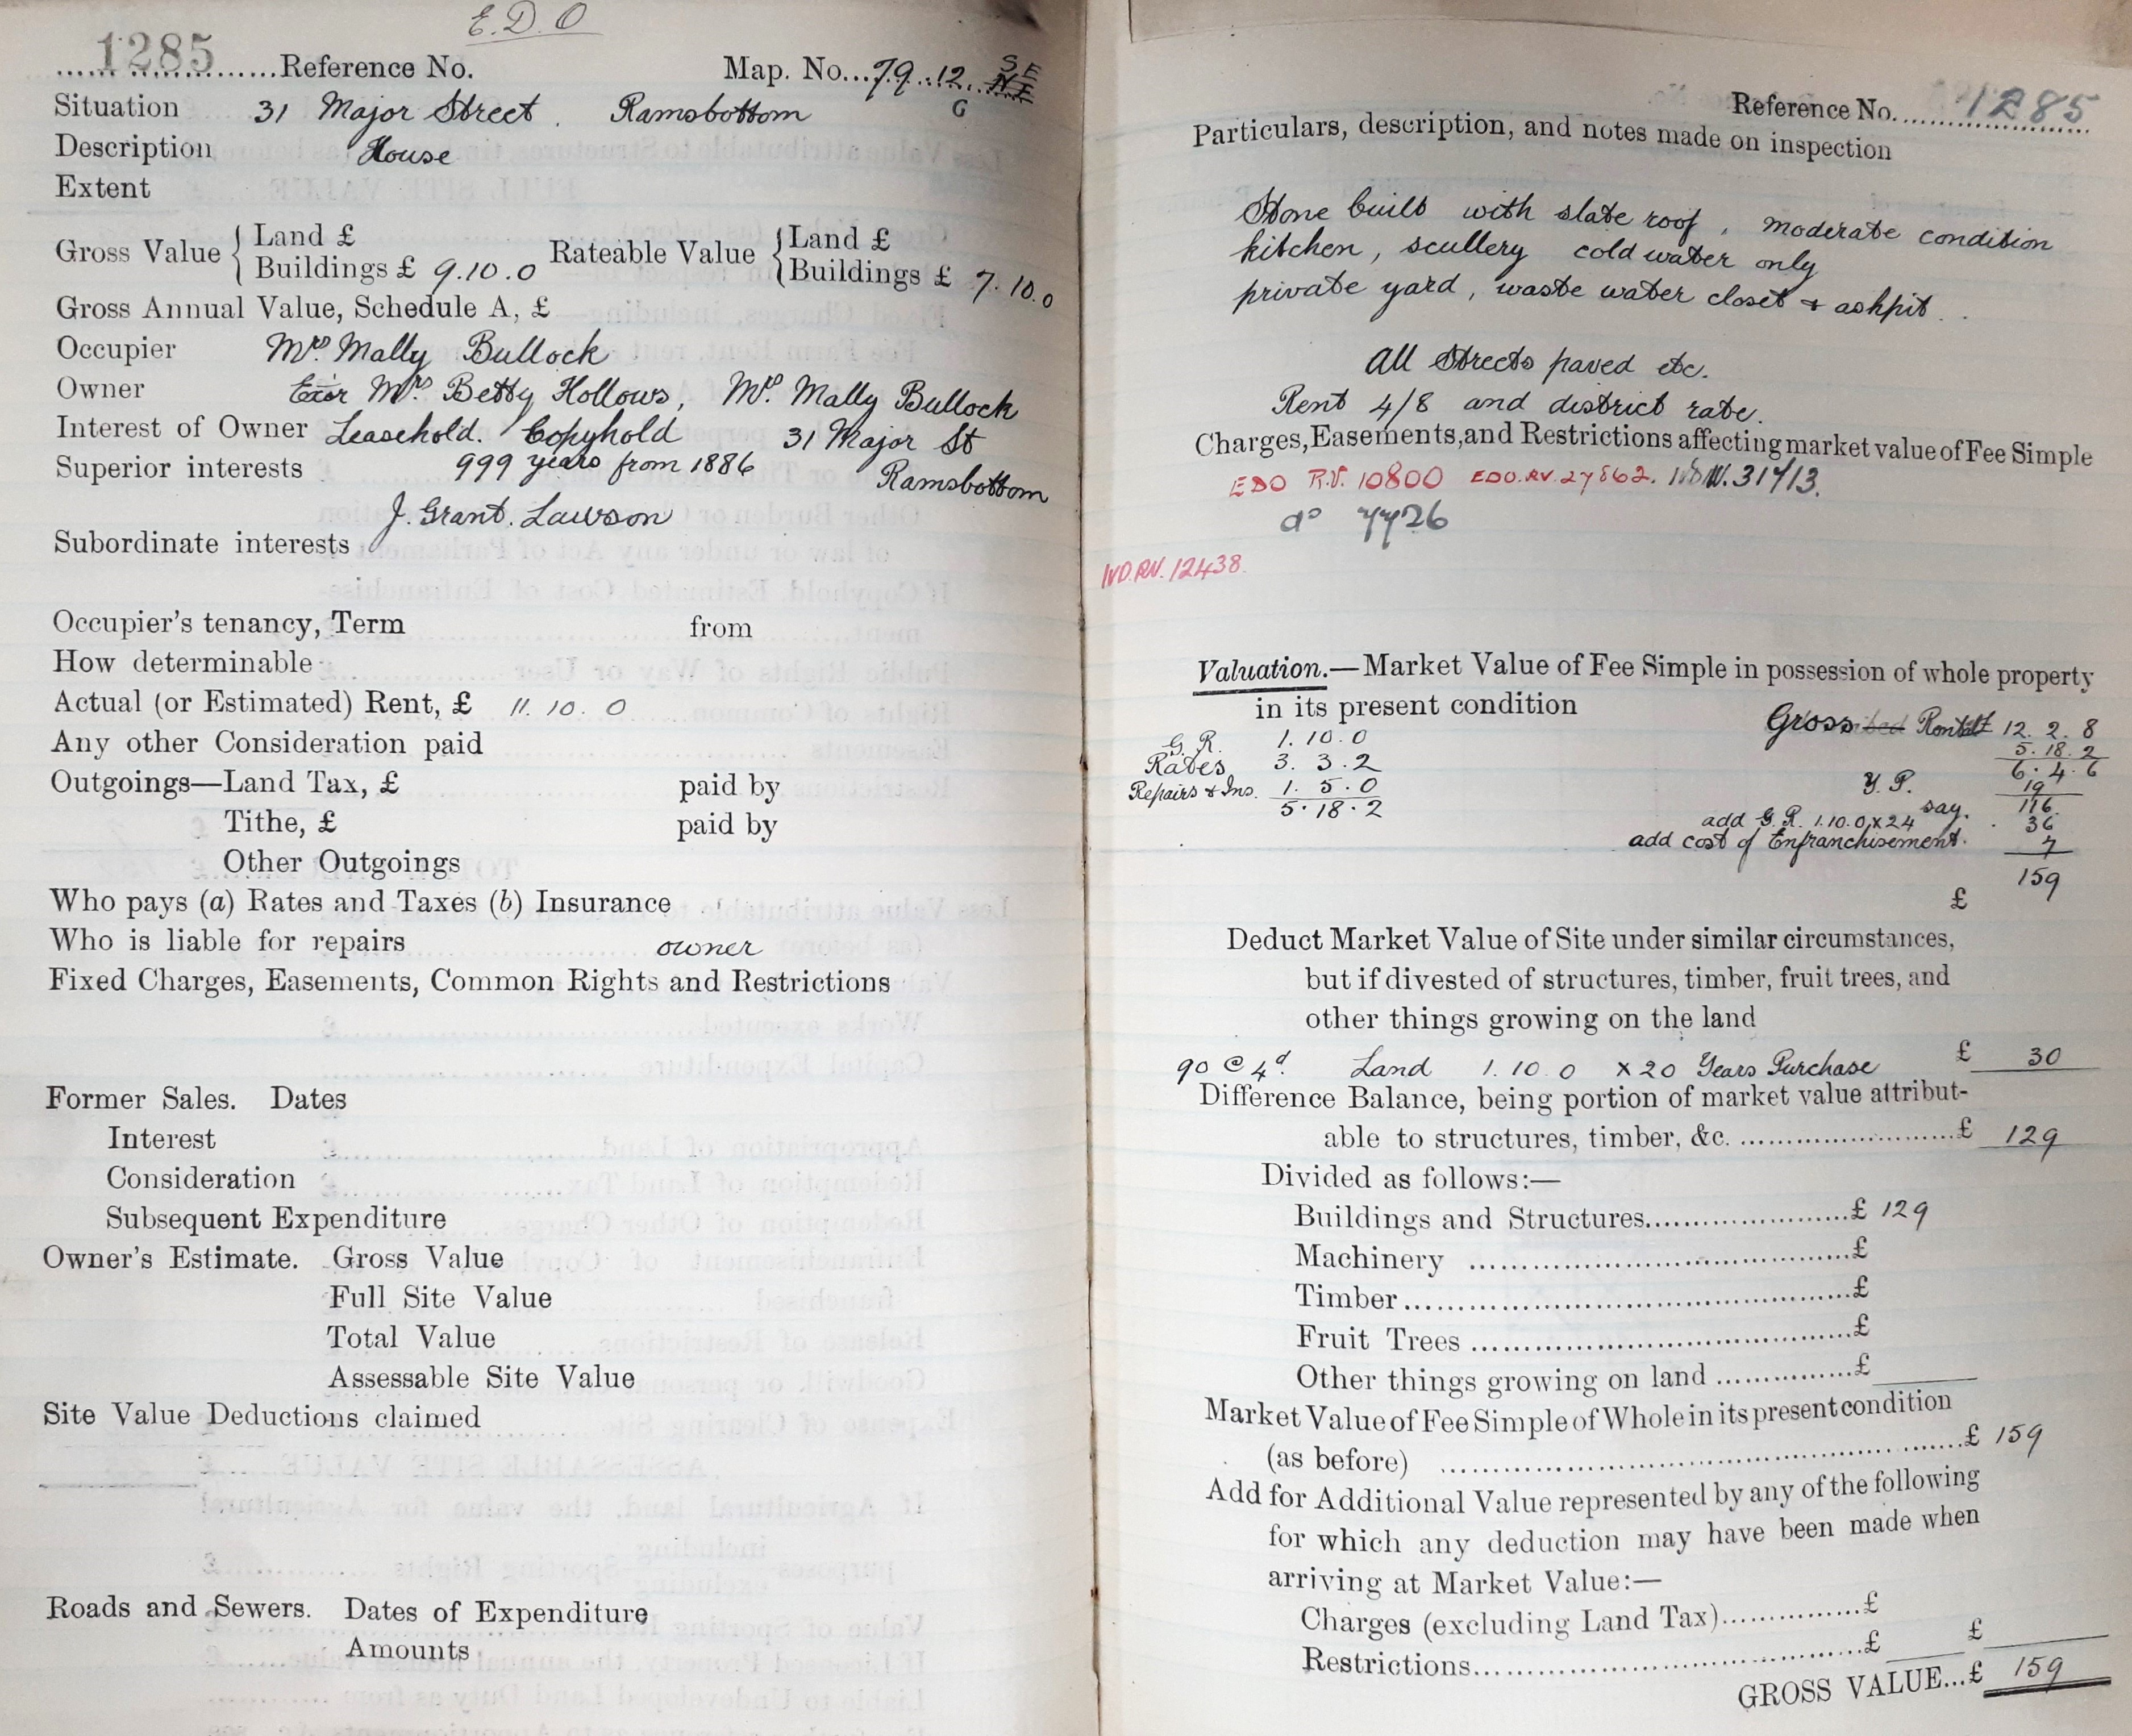 E.D.O
1285 Reference No. Map. No. 79.12. S E
N E
G
Situation 31 Major Street. Ramsbottom
Description House
Extent
Gross Value { Land £ Rateable Value { Land £
Buildings £ 9.10.0 Buildings £ 7.10.0
Gross Annual Value, Schedule A, £
Occupier Mrs. Mally Bullock
Owner Exor Mrs. Betty Hollows, Mrs. Mally Bullock
Interest of Owner Leasehold. Copyhold 31 Major St
Superior interests 999 years from 1886 Ramsbottom
J. Grant. Lawson
Subordinate interests
Occupier's tenancy, Term from
How determinable
Actual (or Estimated) Rent, £ 11.10.0
Any other Consideration paid
Outgoings—Land Tax, £ paid by
Tithe, £ paid by
Other Outgoings
Who pays (a) Rates and Taxes (b) Insurance
Who is liable for repairs owner
Fixed Charges, Easements, Common Rights and Restrictions
Former Sales. Dates
Interest
Consideration
Subsequent Expenditure
Owner's Estimate. Gross Value
Full Site Value
Total Value
Assessable Site Value
Site Value Deductions claimed
Roads and Sewers. Dates of Expenditure
Amounts
Reference No. 1285
Particulars, description, and notes made on inspection
Stone built with slate roof, moderate condition
kitchen, scullery cold water only
private yard, waste water closet & ashpit.
All Streets paved etc.
Rent 4/8 and district rate.
Charges, Easements, and Restrictions affecting market value of Fee Simple
EDO R.V. 10800 EDO.RV. 27862. 31/13.
do 7726
IVD.RV. 12438.
Valuation.—Market Value of Fee Simple in possession of whole property
in its present condition
Gross Rental 12.2.8
G. R. 1.10.0 5.18.2
Rates 3.3.2 6.4.6
Repairs & Ins. 1.5.0 Y. P. 19
5.18.2 say. 116
add G. R. 1.10.0 x 24 36
add cost of Enfranchisement. 7
159
£
Deduct Market Value of Site under similar circumstances,
but if divested of structures, timber, fruit trees, and
other things growing on the land
90 @ 4d. Land 1.10.0 x 20 Years Purchase £ 30
Difference Balance, being portion of market value attribut-
able to structures, timber, &c. £ 129
Divided as follows:—
Buildings and Structures £ 129
Machinery £
Timber £
Fruit Trees £
Other things growing on land £
Market Value of Fee Simple of Whole in its present condition
(as before) £ 159
Add for Additional Value represented by any of the following
for which any deduction may have been made when
arriving at Market Value:—
Charges (excluding Land Tax) £
Restrictions £ £
GROSS VALUE...£ 159